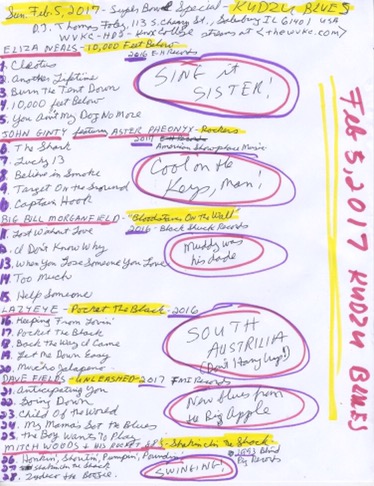 Sun. Feb. 5, 2017 - Super Bowl Special - KUDZU BLUES
D.J. Thomas Foley, 113 S. Cherry St., Galesburg IL 61401 USA
WVKC-HD3 - Knox College streams at <thewvkc.com>
ELIZA NEALS - 10,000 Feet Below
2016 E-H Records
1. Cleotus
2. Another Lifetime
3. Burn the Tent Down
4. 10,000 feet Below
5. You Ain't My Dog No More
SING it
SISTER!
JOHN GINTY featuring ASTER PHEONYX - Rockers
2017
American Showplace Music
6. The Shark
7. Lucky 13
8. Believe in Smoke
9. Target On the Ground
10. Captain Hook
Cool on the
Keys, Man!
BIG BILL MORGANFIELD - Bloodstains On The Wall
2016 - Black Shuck Records
11. Lost Without Love
12. I Don't Know Why
13. When You Lose Someone You Love
14. Too Much
15. Help Someone
Muddy was
his dad
LAZYEYE - Pocket The Black - 2016
16. Keeping From Lovin'
17. Pocket The Black
18. Back the Way I Came
19. Let Me Down Easy
20. Muchо Jalapeno
SOUTH
AUSTRILIA
(Don't Hang Up!)
DAVE FIELDS - UNLEASHED - 2017 FMI Records
21. Anticipating You
22. Boing Down
23. Child Of the World
24. My Mama's Got the Blues
25. the Boy Wants To Play
New blues from
the Big Apple
MITCH WOODS & HIS ROCKET 88's - Shakin' the Shack
1993 Blind
Pig Records
26. Honkin', Shoutin', Pumpin', Poundin'
27. Shakin' the Shack
28. Zydeco the Boogie
SWINGING!
Feb 5, 2017 KUDZU BLUES